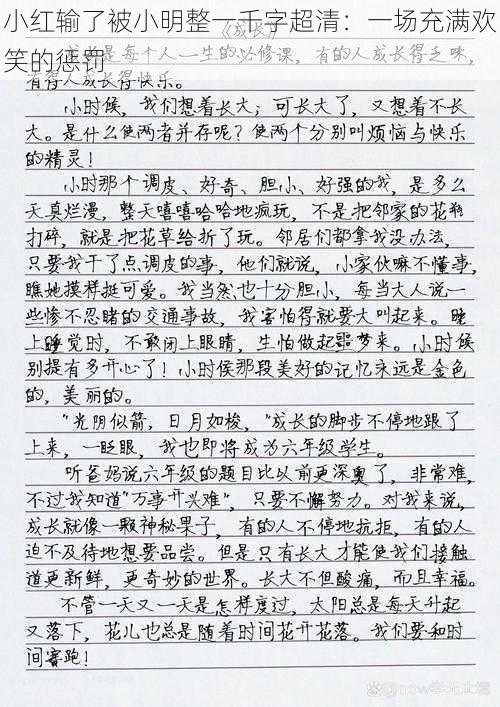 小红输了被小明整一千字超清：一场充满欢
笑的惩罚
《成长》
是每个人一生的必修课，有的人成长得乏味，
有得人成长得快乐。
小时候，我们想着长大；可长大了，又想着不长
大。是什么使两者并存呢？使两个分别叫烦恼与快乐
的精灵！
小时那个调皮、好奇、胆小、好强的我，是多么
天真烂漫，整天嘻嘻哈哈地疯玩，不是把邻家的花瓶
打碎，就是把花草给折了玩。邻居们都拿我没办法，
只要我干了点调皮的事，他们就说，小家伙嘛不懂事，
瞧她摸样挺可爱。我当然也十分胆小，每当大人说一
些惨不忍睹的交通事故，我害怕得就要大叫起来。晚
上睡觉时，不敢闭上眼睛，生怕做起噩梦来。小时候
别提有多开心了！小时侯那段美好的记忆永远是金色
的，美丽的。
"光阴似箭，日月如梭，"成长的脚步不停地跟了
上来，一眨眼，我也即将成为六年级学生。
听爸妈说六年级的题目比以前更深奥了，非常难，
不过我知道"万事开头难"，只要不懈努力。对我来说，
成长就像一颗神秘果子，有的人不停地抗拒，有的人
迫不及待地想要品尝。但是只有长大才能使我们接触
道更新鲜，更奇妙的世界。长大不但酸痛，而且幸福。
不管一天又一天是怎样度过，太阳总是每天升起
又落下，花儿也总是随着时间花开花落。我们要和时
间赛跑！